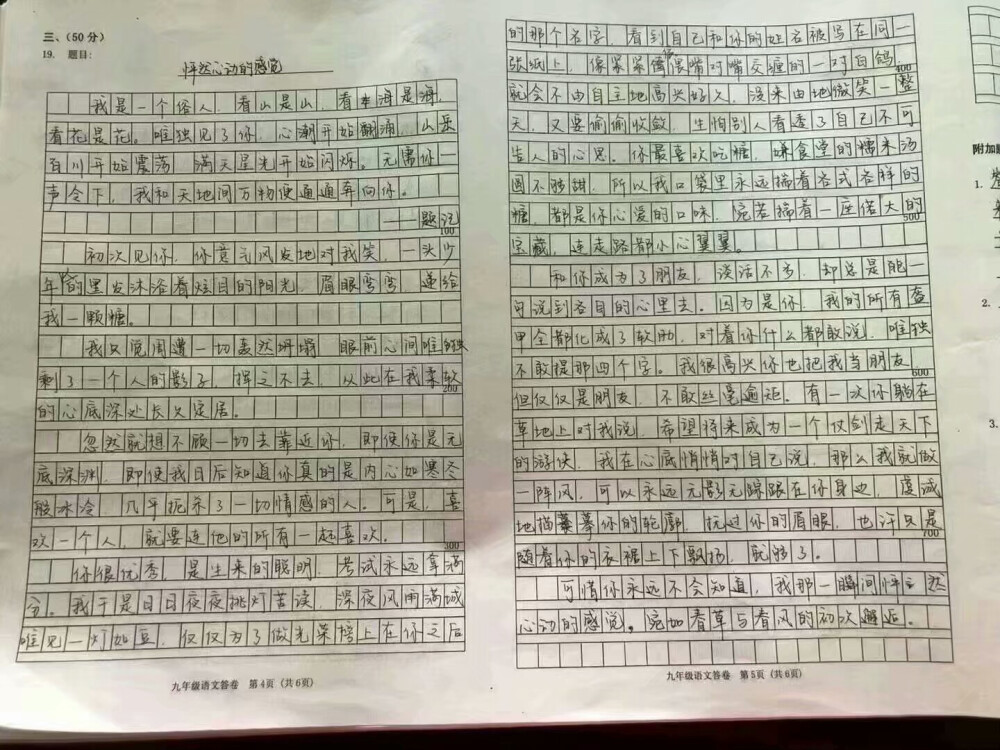 三、(50分)
19. 题目:
怦然心动的感觉
我是一个俗人，看山是山，看海是海，
看花是花。唯独见了你，心潮开始翻涌，山岳
百川开始震荡，满天星光开始闪烁。无需你一
声令下，我和天地间万物便通通奔向你。
——题记
100
初次见你，你意气风发地对我笑，一头少
年的黑发沐浴着炫目的阳光，眉眼弯弯，递给
我一颗糖。
我只觉周遭一切轰然坍塌，眼前心间唯独
剩了一个人的影子，挥之不去，从此在我柔软
200
的心底深处长久定居。
忽然就想不顾一切去靠近你，即使你是无
底深渊，即使我日后知道你真的是内心如寒冬
般冰冷，几乎扼杀了一切情感的人。可是，喜
欢一个人，就要连他的所有一起喜欢。
300
你很优秀，是生来的聪明，考试永远拿满
分。我于是日日夜夜挑灯苦读，深夜风雨满城
唯见一灯如豆，仅仅为了做光荣榜上在你之后
九年级语文答卷 第4页（共6页）
的那个名字，看到自己和你的姓名被写在同一
张纸上，像紧紧偎依嘴对嘴交缠的一对白鸽
400
就会不由自主地高兴好久，没来由地微笑一整
天，又要偷偷收敛，生怕别人看透了自己不可
告人的心思。你最喜欢吃糖，嫌食堂的糯米汤
圆不够甜，所以我口袋里永远揣着各式各样的
糖，都是你心爱的口味，宛若揣着一座偌大的
500
宝藏，连走路都小心翼翼。
和你成为了朋友，谈话不多，却总是能一
句说到各自的心里去。因为是你，我的所有盔
甲全都化成了软肋，对着你什么都敢说，唯独
不敢提那四个字。我很高兴你也把我当朋友
600
但仅仅是朋友，不敢丝毫逾距。有一次你躺在
草地上对我说，希望将来成为一个仗剑走天下
的游侠，我在心底悄悄对自己说，那么我就做
一阵风，可以永远无影无踪跟在你身边，虔诚
地描摹你的轮廓，抚过你的眉眼，也许只是
700
随着你的衣裾上下飘扬，就够了。
可惜你永远不会知道，我那一瞬间怦然
心动的感觉。宛如春草与春风的初次邂逅。
九年级语文答卷 第5页（共6页）
附加
1.
2.
3.